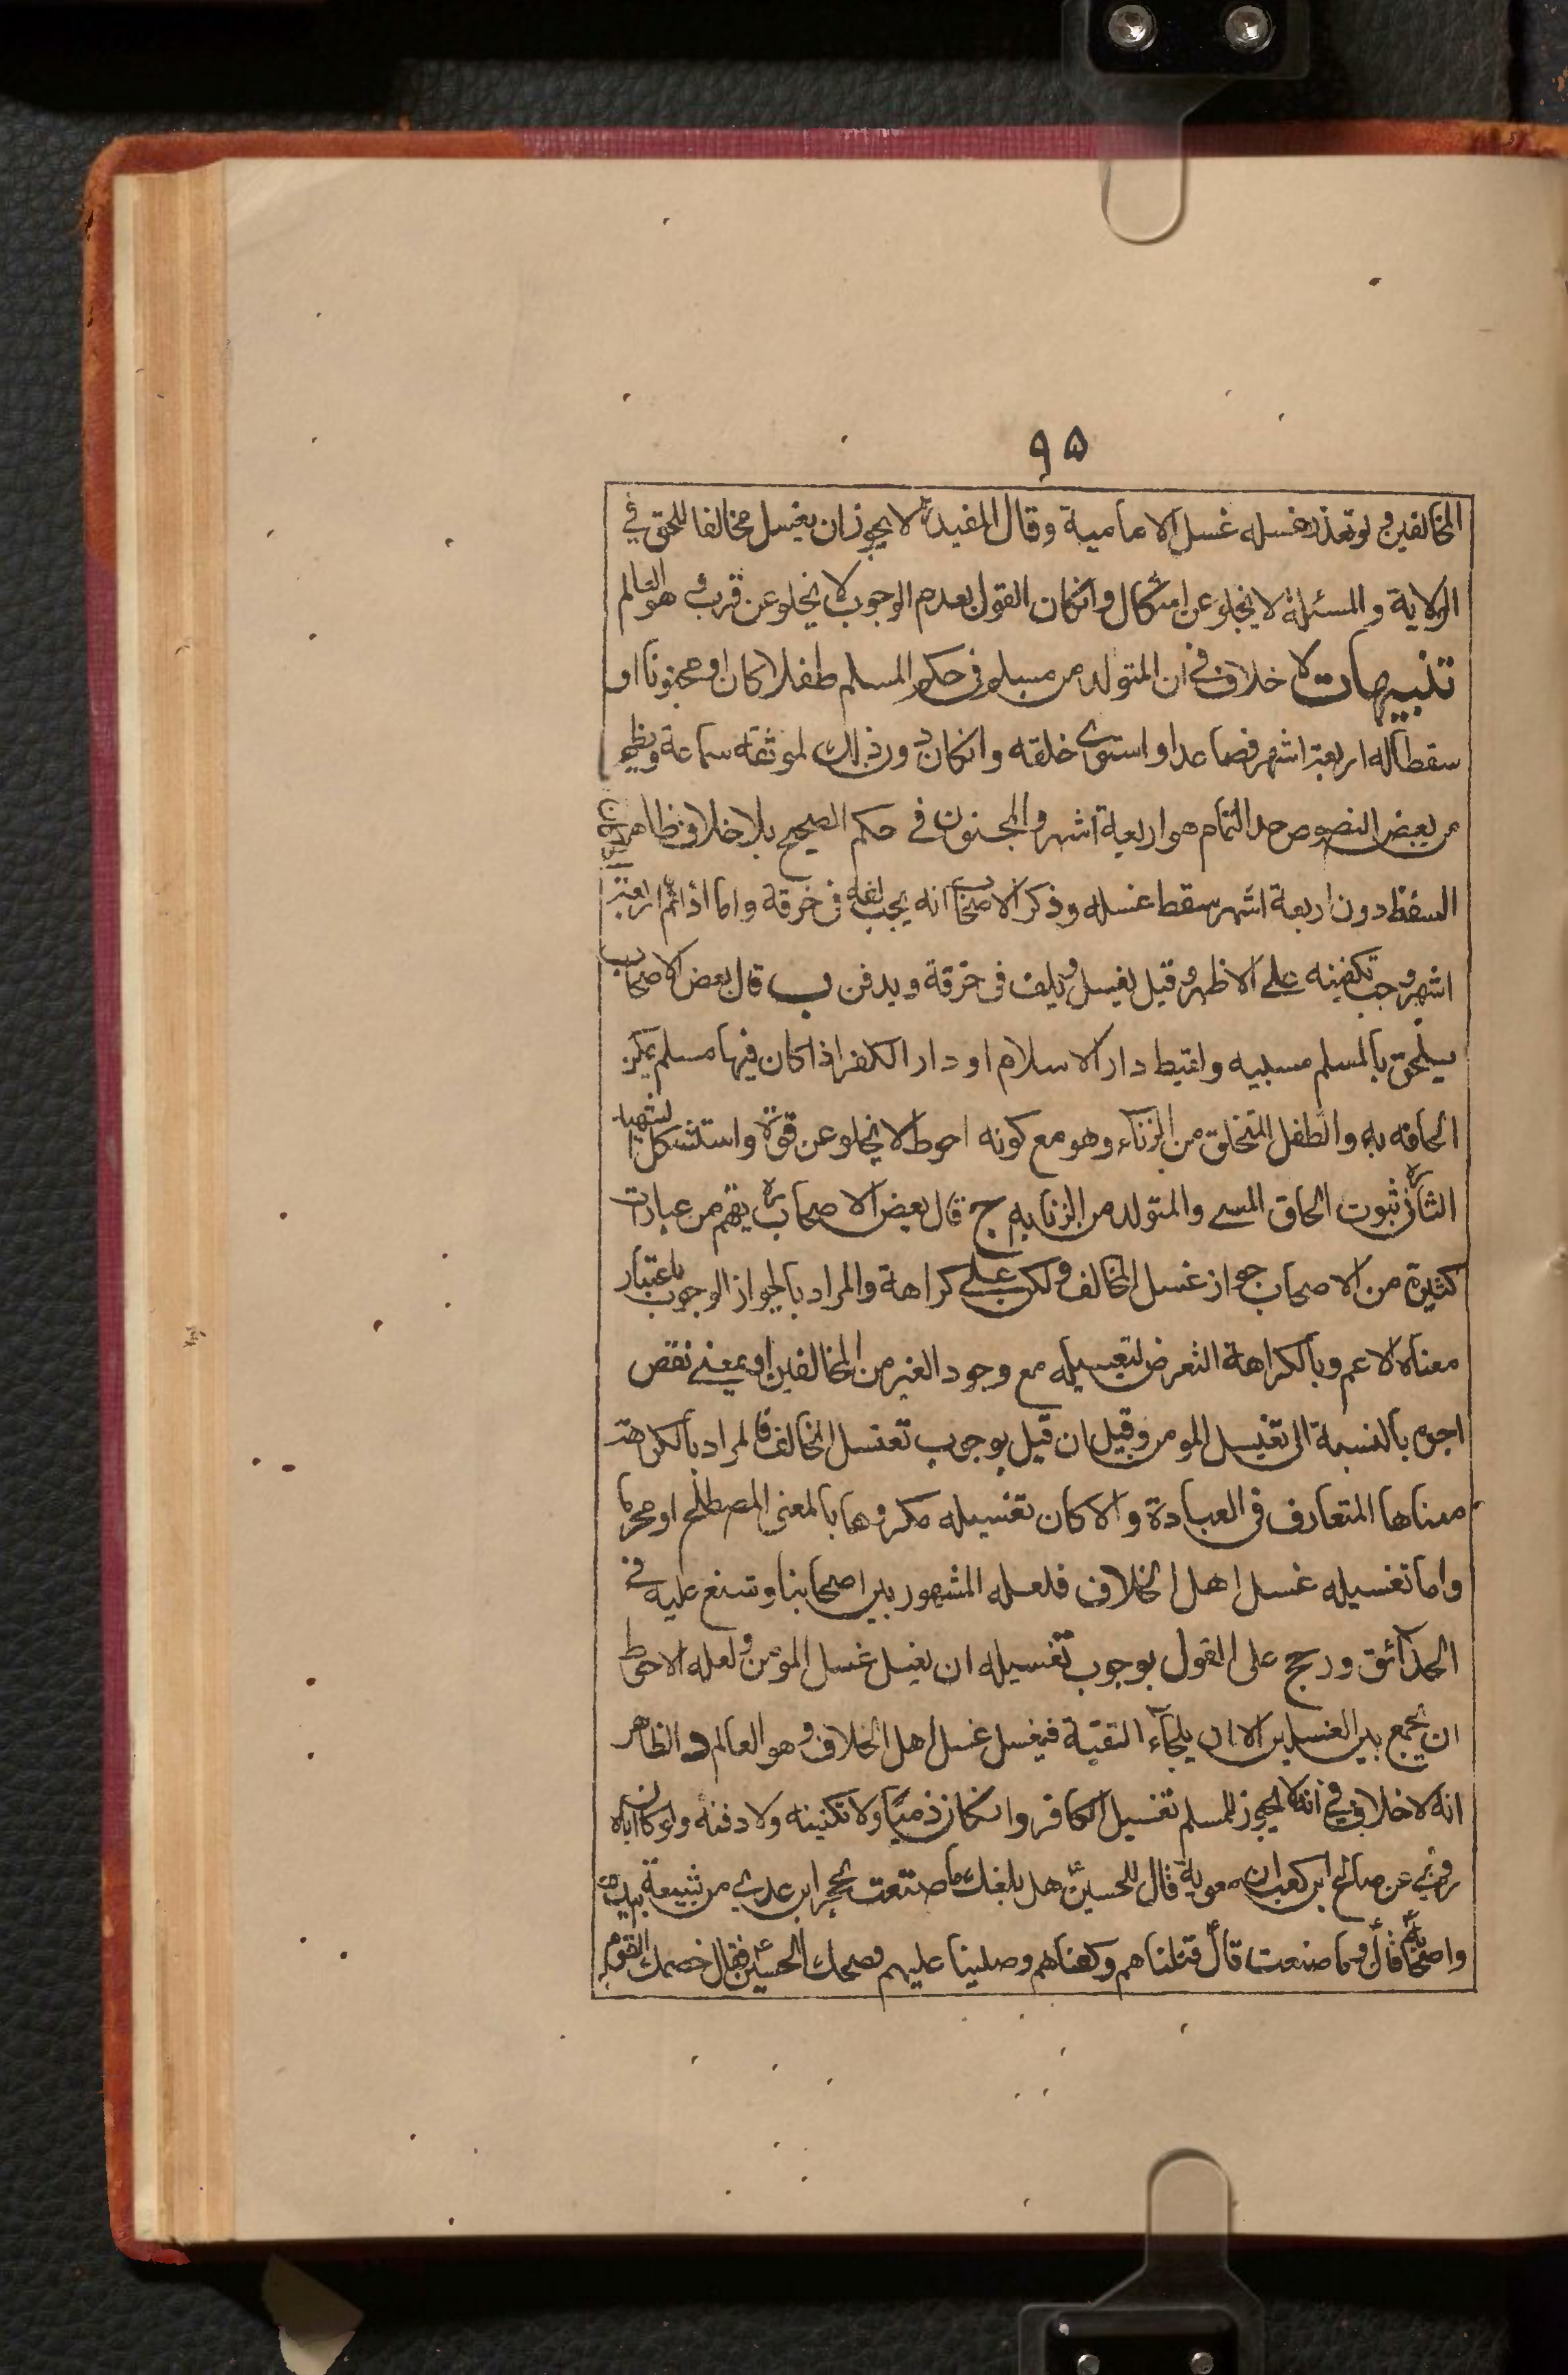 ٩٥
المخالفين ولو تعذر غسله غسل الامامية وقال المفيد ره لا يجوز ان يغسل مخالفا للحق في
الولاية والمسئلة لا يخلو عن اشكال وانكان القول بعدم الوجوب لا يخلو عن قرب وهو العالم
تنبيهات لا خلاف في ان المتولد من مسلم في حكم المسلم طفلا كان او مجنونا او
سقطا له اربعة اشهر فصاعدا او استوى خلقه وانكان دون ذلك لموثقه سماعة ويظهر
من بعض النصوص حد التمام هو اربعة اشهر والمجنون في حكم الصحيح بلا خلاف ظاهر
السقط دون اربعة اشهر سقط غسله وذكر الاصحاب انه يجب لفه في خرقة واما اذا تم اربعة
اشهر وجب تكفينه على الاظهر وقيل يغسل ويلف في خرقة ويدفن ب قال بعض الاصحاب
يلحق بالمسلم مسبيه ولقيط دار الاسلام او دار الكفر اذا كان فيها مسلم يمكن
الحاقه به والطفل المتخلق من الزناء وهو مع كونه احوط لا يخلو عن قوة واستشكل الشهيد
الثاني ره ثبوت الحاق المسبي والمتولد من الزنا به ج قال بعض الاصحاب ره يفهم من عبارات
كثيرة من الاصحاب جواز غسل المخالف ولكن على كراهة والمراد بالجواز الوجوب باعتبار
معناه الاعم وبالكراهة التعرض لتغسيله مع وجود الغير من المخالفين او بمعنى نقص
اجره بالنسبة الى تغسيل المومن وقيل ان قيل بوجوب تغسل المخالف فالمراد بالكراهة
معناها المتعارف في العبادة والا كان تغسيله مكروها بالمعنى المصطلح او محرما
واما تغسيله غسل اهل الخلاف فلعله المشهور بين اصحابنا وشنع عليه في
الحدائق ورجح على القول بوجوب تغسيله ان يغسل غسل المومن ولعله الاحوط
ان يجمع بين الغسلين الا ان يلجاء التقية فيغسل غسل اهل الخلاف وهو العالم د الظاهر
انه لا خلاف في انه لا يجوز للمسلم تغسيل الكافر وانكان ذميا ولا تكفينه ولا دفنه ولو كان اباه
وروي عن صالح ابن كعب ان معوية قال للحسين ع هل بلغك ما صنعت بحجر ابن عدي من شيعة ابيك
واصحابه قال وما صنعت قال قتلناهم وكفناهم وصلينا عليهم فضحك الحسين ع فقال خصمك القوم